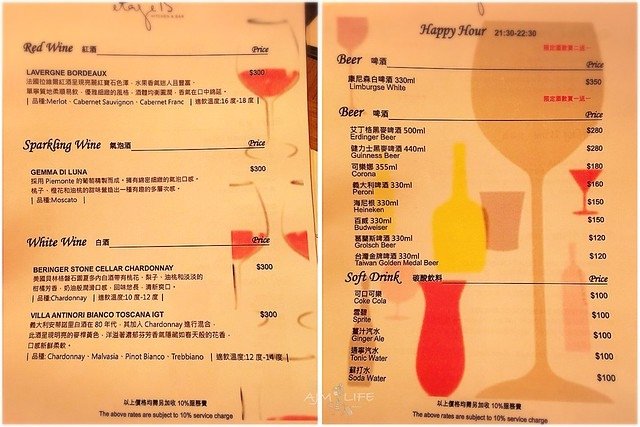 étage 15
KITCHEN & BAR
Red Wine 紅酒 Price
LAVERGNE BORDEAUX $300
法國拉維爾紅酒呈現亮麗紅寶石色澤,水果香氣迷人且豐富,
單寧質地柔順易飲,優雅細緻的風格,酒體均衡圓潤,香氣在口中綿延。
| 品種:Merlot、Cabernet Sauvignon、Cabernet Franc | 進飲溫度:16 度-18 度 |
Sparkling Wine 氣泡酒 Price
GEMMA DI LUNA $300
採用 Piemonte 的葡萄精製而成,擁有綿密細緻的氣泡口感。
桃子、橙花和油桃的甜味營造出一種有趣的多層次感。
| 品種:Moscato |
White Wine 白酒 Price
BERINGER STONE CELLAR CHARDONNAY $300
美國貝林格酷石園夏多內白酒帶有桃花、梨子、油桃和淡淡的
柑橘芳香,奶油般潤滑口感,回味悠長,清新爽口。
| 品種:Chardonnay | 進飲溫度:10 度-12 度 |
VILLA ANTINORI BIANCO TOSCANA IGT $300
義大利安蒂諾里白酒在 80 年代,其加入 Chardonnay 進行混合,
此酒呈現明亮的麥稈黃色,洋溢著濃郁芬芳香氣隱藏如春天般的花香,
口感新鮮柔軟。
| 品種: Chardonnay、Malvasia、Pinot Bianco、Trebbiano | 進飲溫度:12 度-14 度 |
以上價格均需另加收 10%服務費
The above rates are subject to 10% service charge
Happy Hour 21:30-22:30
限定酒款買二送一
Beer 啤酒 Price
康尼森白啤酒 330ml $350
Limburgse White
限定酒款買一送一
Beer 啤酒 Price
艾丁格黑麥啤酒 500ml $280
Erdinger Beer
健力士黑麥啤酒 440ml $280
Guinness Beer
可樂娜 355ml $180
Corona
義大利啤酒 330ml $160
Peroni
海尼根 330ml $150
Heineken
百威 330ml $150
Budweiser
葛蘭斯啤酒 330ml $120
Grolsch Beer
台灣金牌啤酒 330ml $120
Taiwan Golden Medal Beer
Soft Drink 碳酸飲料 Price
可口可樂 $100
Coke Cola
雪碧 $100
Sprite
薑汁汽水 $100
Ginger Ale
通寧汽水 $100
Tonic Water
蘇打水 $100
Soda Water
以上價格均需另加收 10%服務費
The above rates are subject to 10% service charge
AJM LIFE